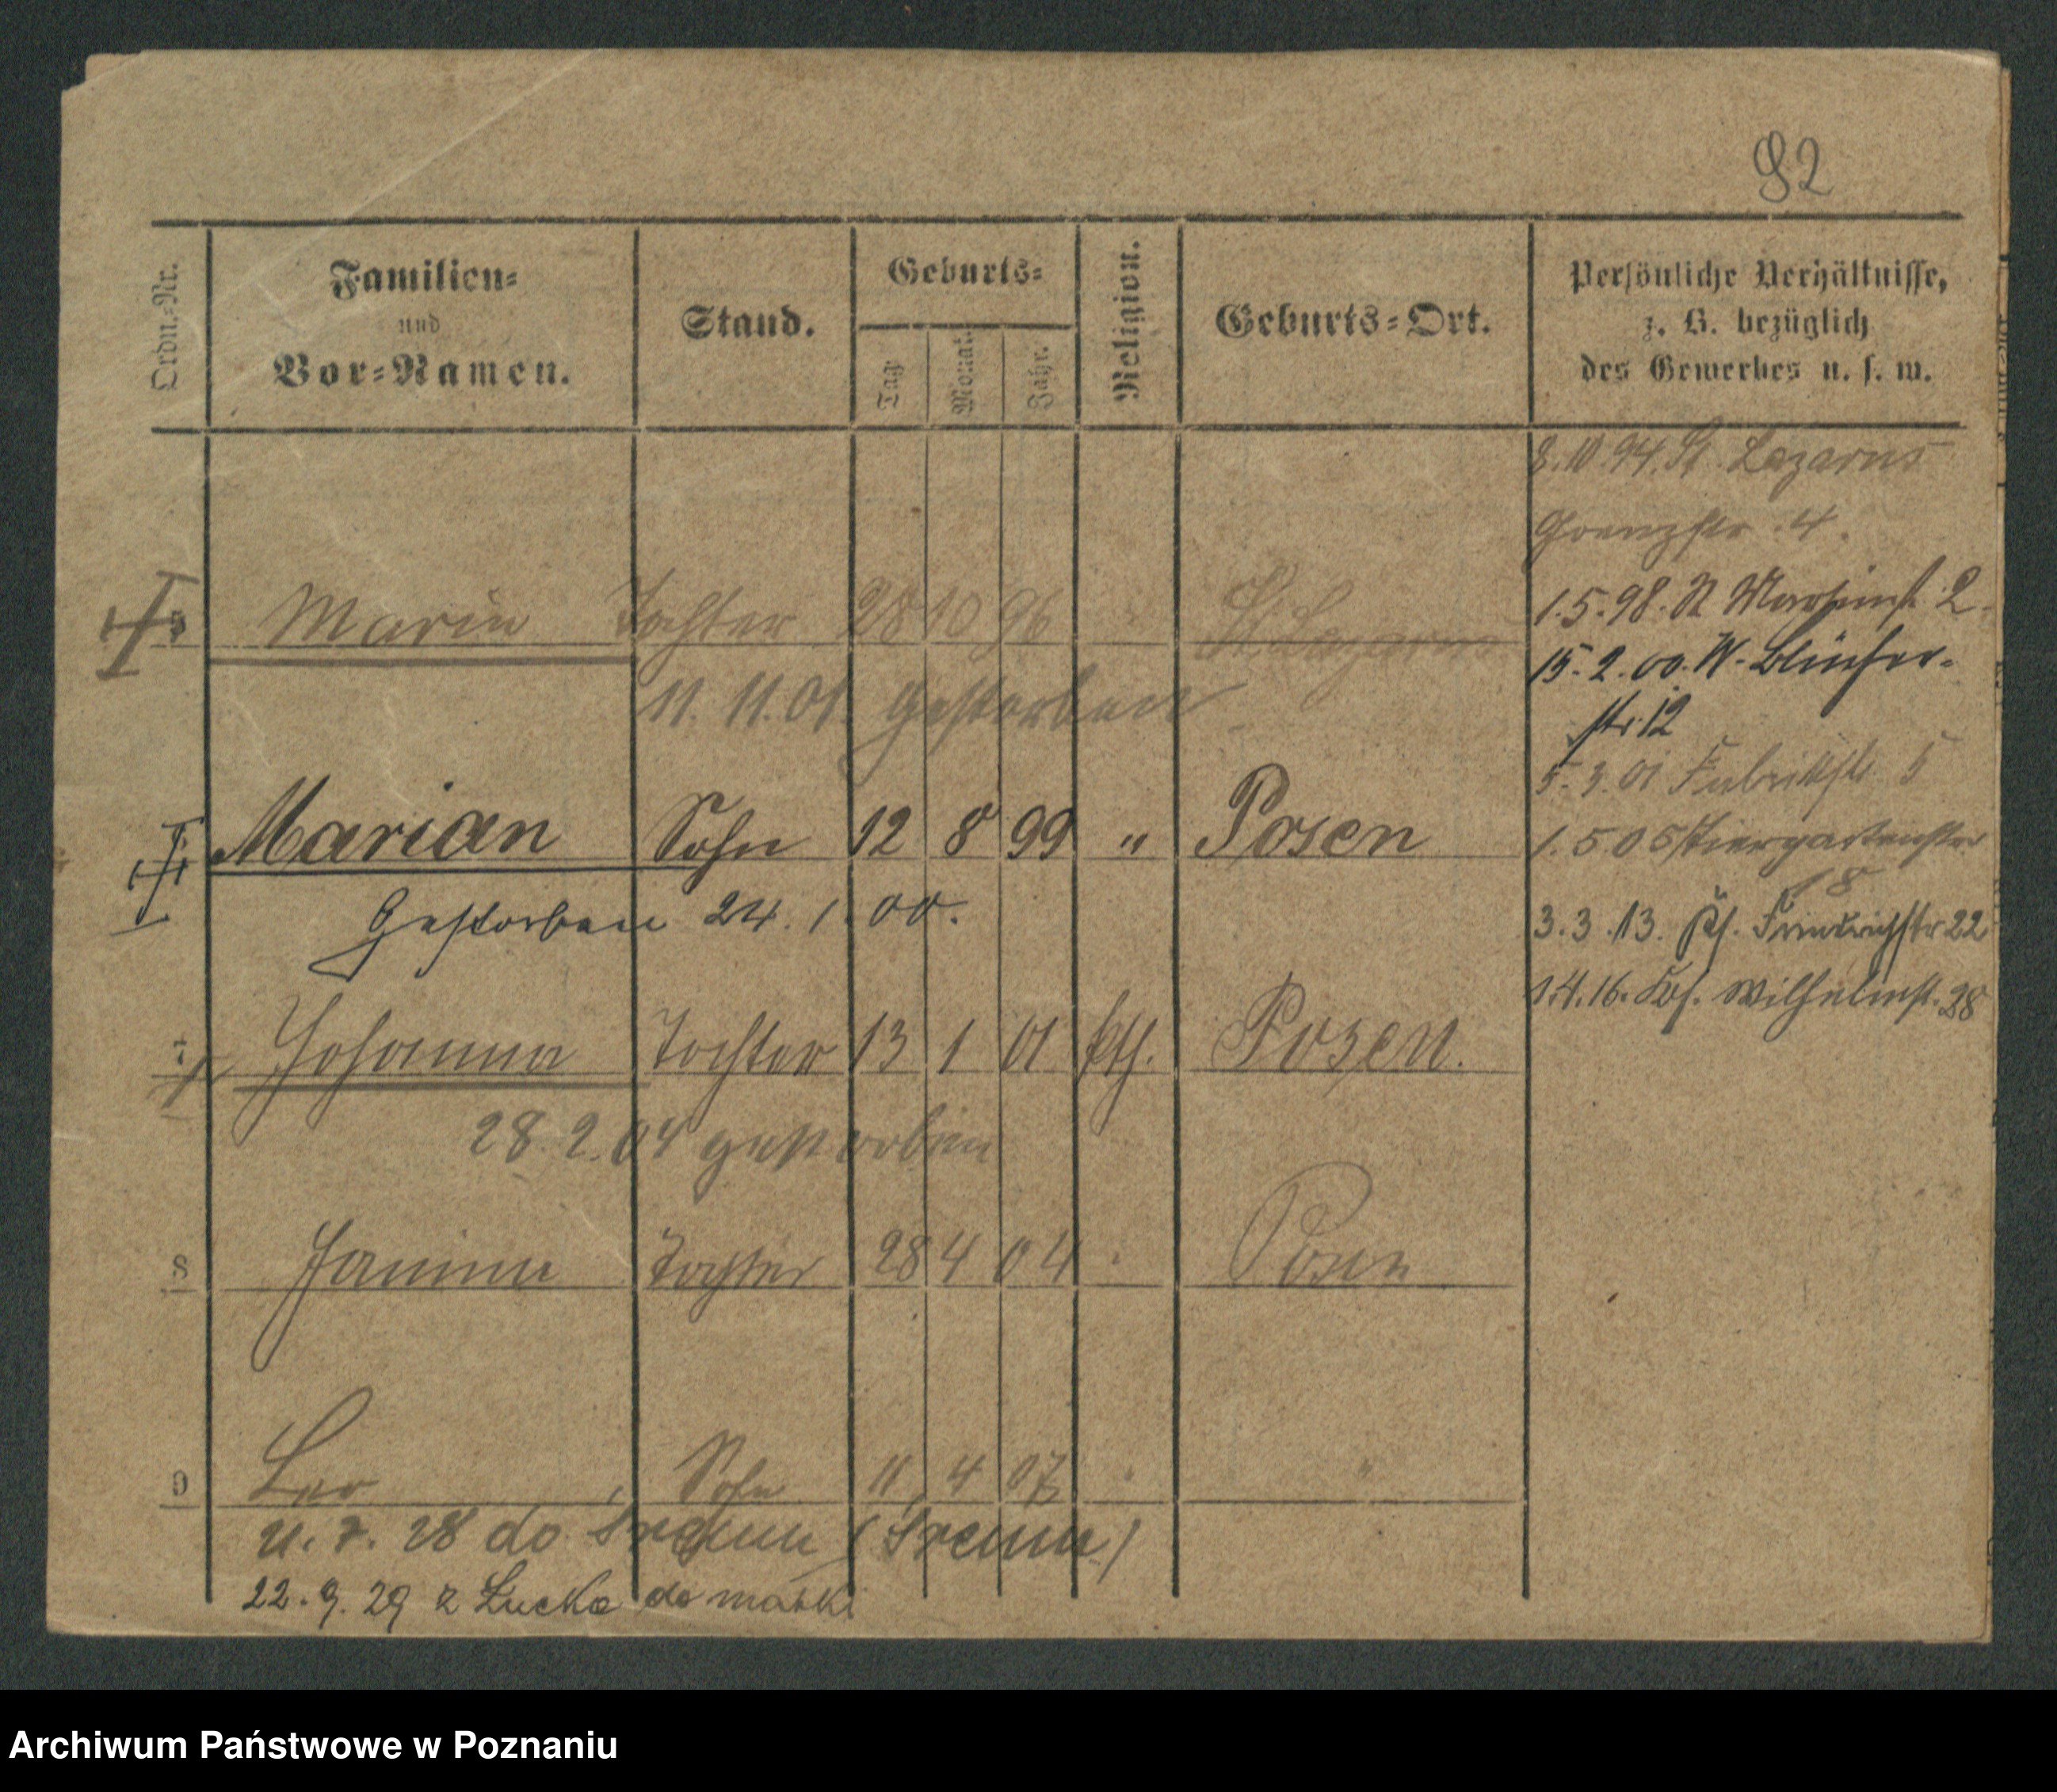 92
Ordn.-Nr.
Familien-
und
Vor-Namen.
Stand.
Geburts-
Tag
Monat.
Jahr.
Religion.
Geburts-Ort.
Persönliche Verhältnisse,
z. B. bezüglich
des Gewerbes u. s. w.
8.10.94. St. Lazarus
Grenzstr. 4.
1.5.98. St Martinst. 2.
15.2.00. W-
str. 12
5.3.01 Fabrikstr. 5
1.5.05 Tiergartenstr
8
3.3.13. Friedrichstr 22
1.4.16. Wilhelmst. 28
Marie Tochter 28 10 96 St. Lazarus
11.11.01. gestorben
Marian Sohn 12 8 99 " Posen
Gestorben 24.1.00.
7 Johanna Tochter 13 1 01 kth. Posen.
28.2.04 gestorben
8 Janina Tochter 28 4 04 Posen
9 Leo, Sohn 11 4 07 " "
28 do (Sremu)
22.9.29 z Łucka do matki
Archiwum Państwowe w Poznaniu